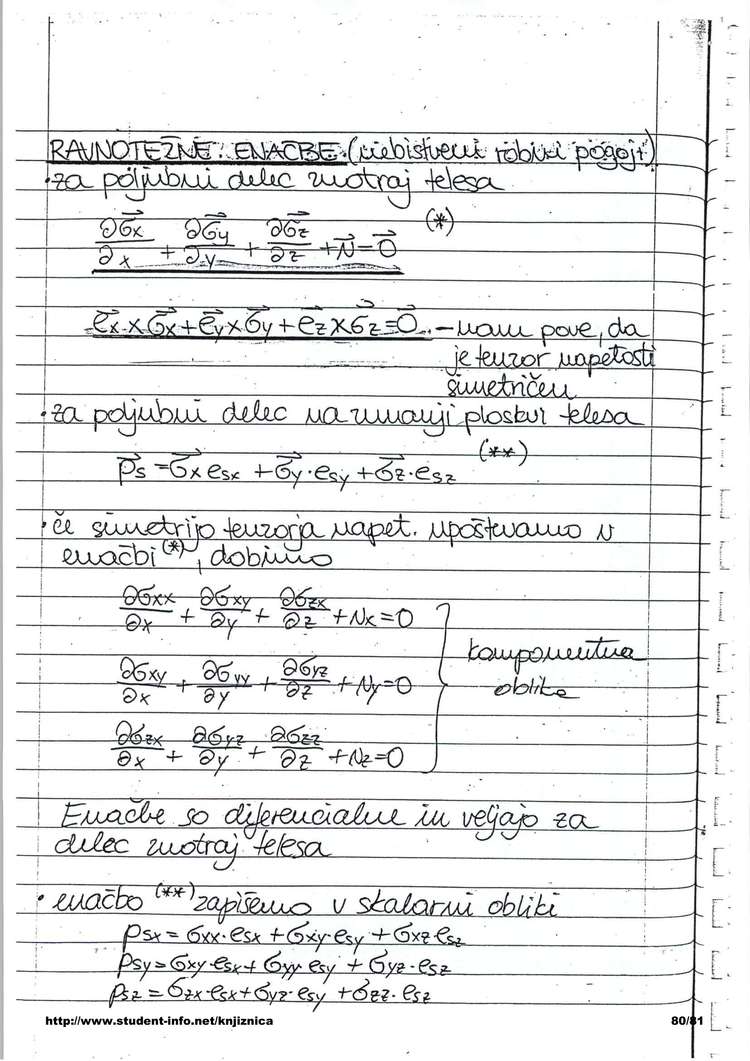 RAVNOTEŽNE ENAČBE (nebistveni robni pogoji)
• za poljubni delec znotraj telesa
∂σ⃗x/∂x + ∂σ⃗y/∂y + ∂σ⃗z/∂z + N⃗ = 0⃗ (*)
e⃗x × σ⃗x + e⃗y × σ⃗y + e⃗z × σ⃗z = 0⃗ – nam pove, da
je tenzor napetosti
simetričen
• za poljubni delec na zunanji ploskvi telesa
p⃗s = σ⃗x esx + σ⃗y · esy + σ⃗z · esz (**)
• če simetrijo tenzorja napet. upoštevamo v
enačbi (*), dobimo
∂σxx/∂x + ∂σxy/∂y + ∂σzx/∂z + Nx = 0
∂σxy/∂x + ∂σyy/∂y + ∂σyz/∂z + Ny = 0
komponentna
oblika
∂σzx/∂x + ∂σyz/∂y + ∂σzz/∂z + Nz = 0
Enačbe so diferencialne in veljajo za
delec znotraj telesa
• enačbo (**) zapišemo v skalarni obliki
psx = σxx · esx + σxy · esy + σxz · esz
psy = σxy · esx + σyy · esy + σyz · esz
psz = σzx · esx + σyz · esy + σzz · esz
http://www.student-info.net/knjiznica 80/81